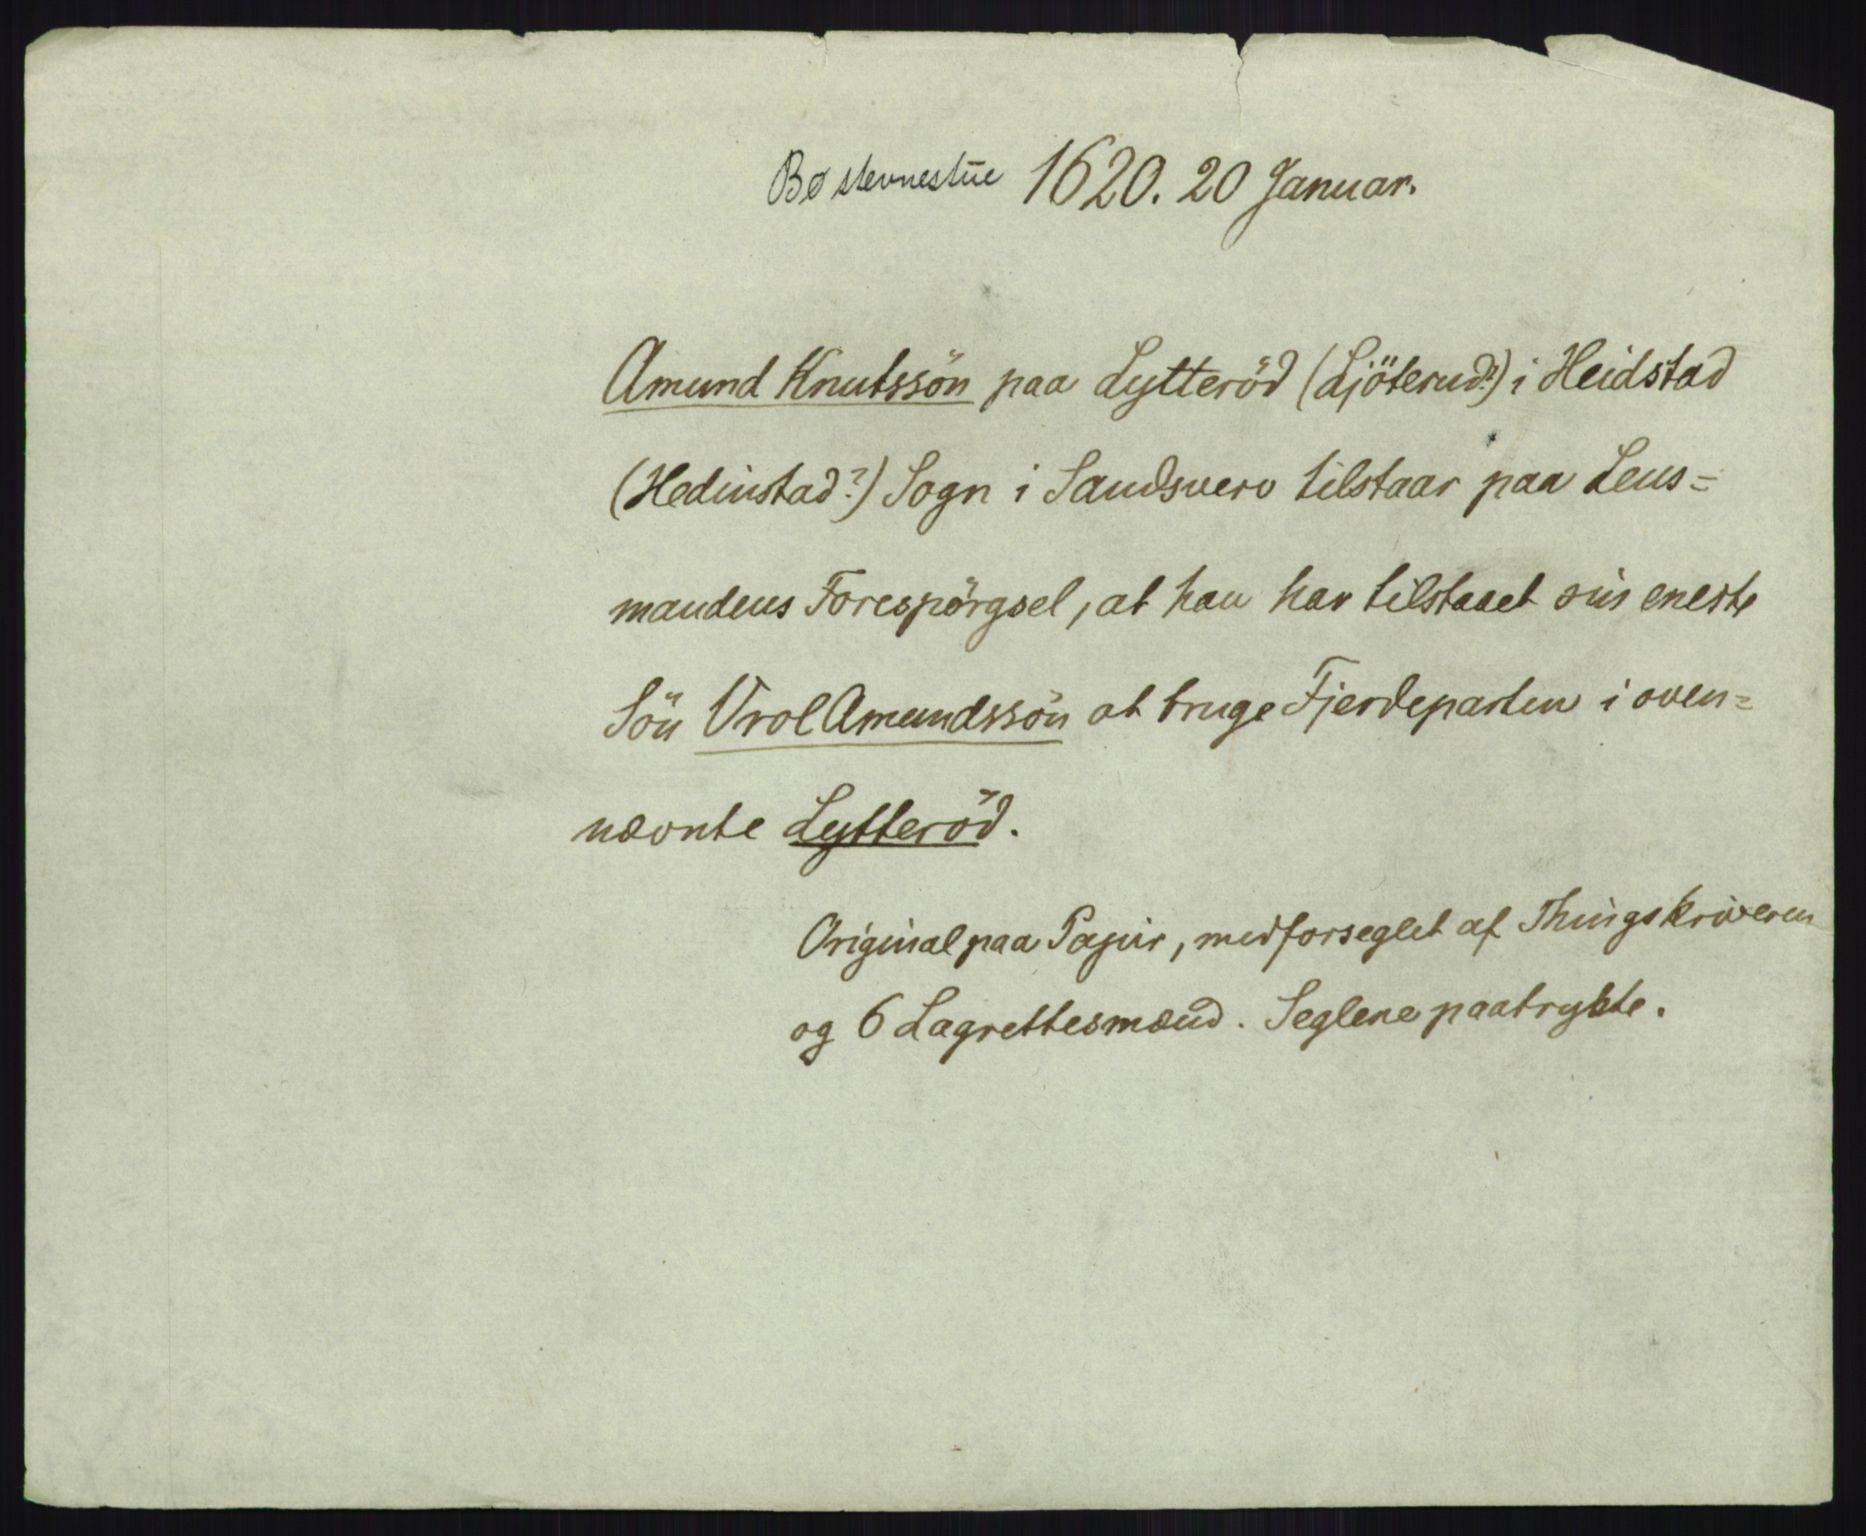 Bø stevnestue 1620. 20 Januar.
Amund Knutssön paa Lytteröd (Ljöterud?) i Heidstad
(Hedinstad?) Sogn i Sandsverv tilstaar paa Lens-
mandens Forespörgsel, at han har tilstaaet sin eneste
Sön Vrol Amundssön at bruge Fjerdeparten i oven-
nævnte Lytteröd.
Original paa Papir, medforseglet af Thingskriveren
og 6 Lagrettesmænd. Seglene paatrykte.